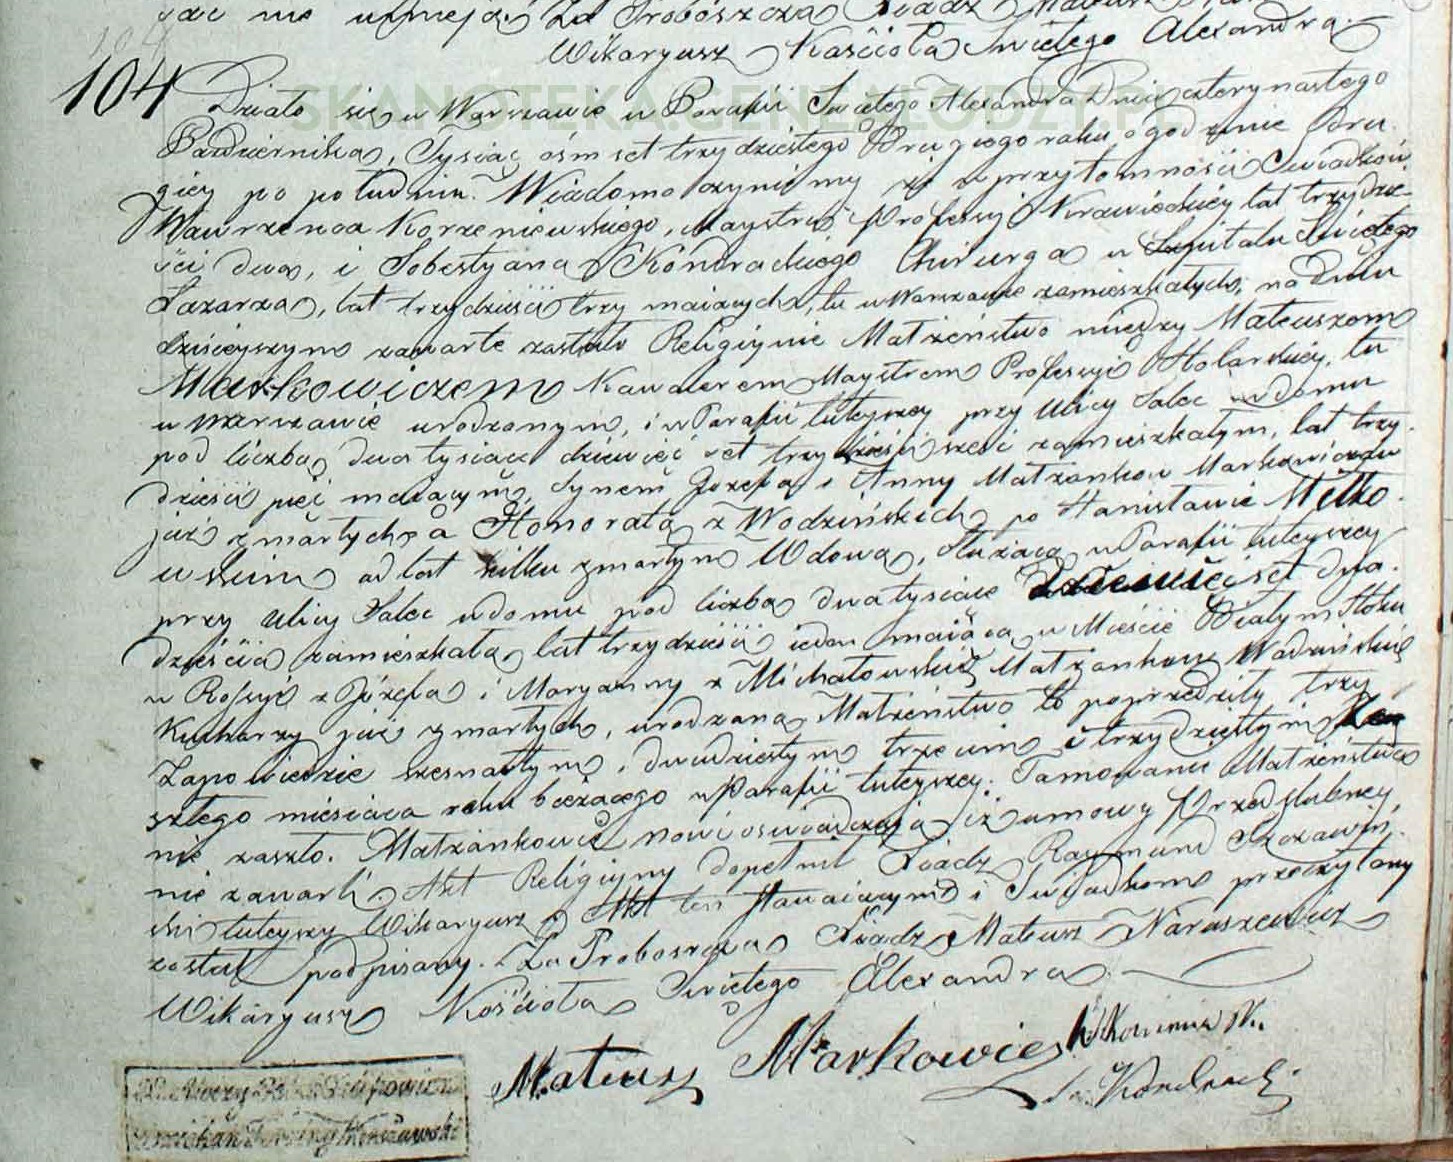 Za Proboszcza Xiądz
Wikaryusz Kościoła Swiętego Alexandra
104
Działo się w Warszawie w Parafii Swiętego Alexandra Dnia czternastego
Pazdziernika, Tysiąc ośmset trzydziestego Drugiego roku o godzinie dru-
giey po południu. Wiadomo czyniemy iż w przytomności Swiadków
Wawrzenca Korzeniewskiego, Maystra Professyi Krawieckiey lat trzydzie-
ści dwa, i Sobestyana Kondrackiego Chirurga w Szpitalu Swiętego
Łazarza, lat trzydzieści trzy maiących, tu w Warszawie zamieszkałych, na dniu
dzisieyszym zawarte zostało Religiynie Małżeństwo między Mateuszem
Markowiczem Kawalerem Maystrem Professyi Stolarskiey, tu
w Warszawie urodzonym, i w Parafii tuteyszey przy Ulicy Solec w domu
pod liczbą dwa tysiące dziewięć set trzydzieści sześć zamieszkałym, lat trzy-
dzieści pięć maiącym, Synem Józefa i Anny Małżonków Markowiczów
już zmarłych; a Honoratą z Wodzińskich po Stanisławie Metko-
wskim od lat kilku zmarłym Wdową, służącą w Parafii tuteyszey
przy Ulicy Solec w domu pod liczbą dwa tysiące dziewięćset dwa-
dzieścia zamieszkałą, lat trzydzieści ieden maiącą, w Mieście Białym Stoku
w Rossyi z Józefa i Maryanny z Michałowskich Małżonków Wodzińskich
Kucharzy już zmarłych, urodzoną. Małżeństwo to poprzedziły trzy
Zapowiedzie szesnastym, dwudziestym trzecim i trzydziestym Ze-
szłego miesiąca roku bieżącego w Parafii tuteyszey. Tamowanie Małżeństwa
nie zaszło. Małżonkowie nowi oświadczaią iż umowy Przedślubney,
nie zawarli. Akt Religiyny dopełnił Xiądz Raymund Szczawiń-
ski tuteyszy Wikaryusz. Akt ten Stawaiącym i Swiadkom przeczytany
został podpisany. Za Proboszcza Xiądz Mateusz Naruszewicz
Wikaryusz Kościoła Swiętego Alexandra
Mateusz Markowicz
Kondracki